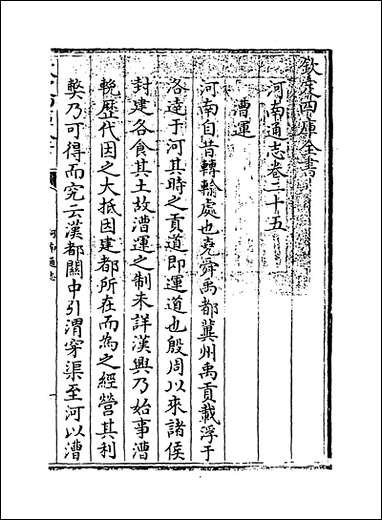 欽定四庫全書
河南通志卷二十五
漕運
河南自昔轉輸處也堯舜禹都冀州禹貢載浮于
洛達于河其時之貢道即運道也殷周以來諸侯
封建各食其土故漕運之制未詳漢興乃始事漕
輓歴代因之大抵因建都所在而為之經營其利
獘乃可得而究云漢都關中引渭穿渠至河以漕
河南通志